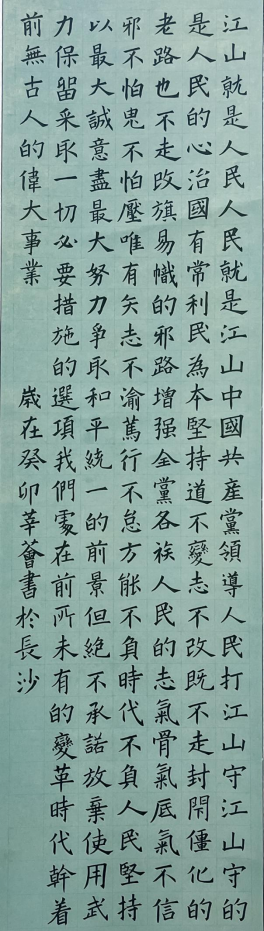 江山就是人民人民就是江山中國共産黨領導人民打江山守江山守的
是人民的心治國有常利民為本堅持道不變志不改既不走封閇僵化的
老路也不走改旗易幟的邪路增强全黨各族人民的志氣骨氣底氣不信
邪不怕鬼不怕壓唯有矢志不渝篤行不怠方能不負時代不負人民堅持
以最大誠意盡最大努力爭取和平統一的前景但絶不承諾放棄使用武
力保留采取一切必要措施的選項我們處在前所未有的變革時代幹着
前無古人的偉大事業 歲在癸卯莘薈書於長沙